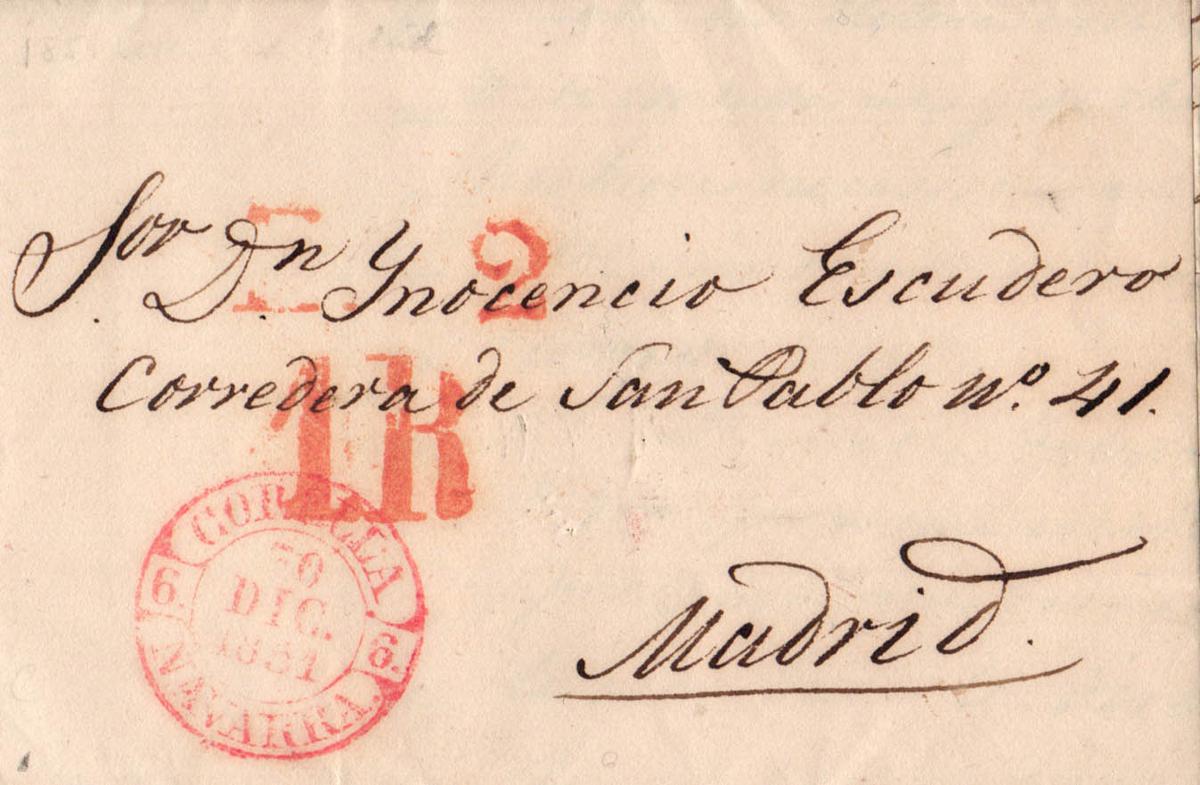 Sor. Dn. Ynocencio Escudero
Corredera de San Pablo nº. 41.
Madrid.
2
1R
CORELLA
6. 6.
30
DIC.
1851
NAVARRA.